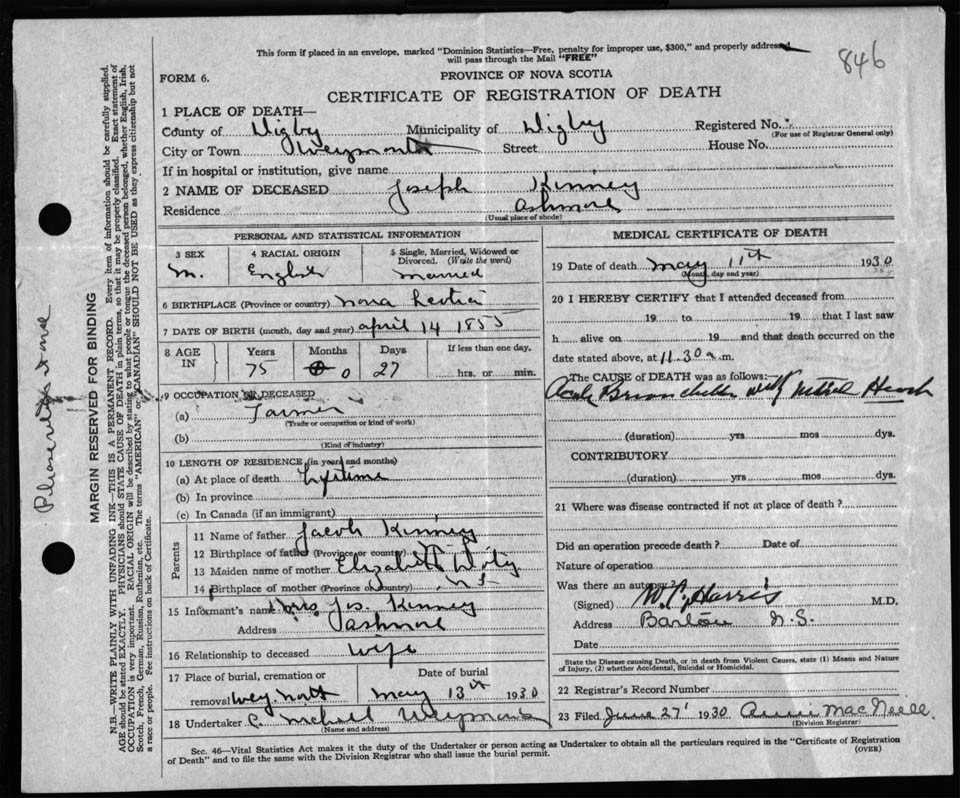 This form if placed in an envelope, marked "Dominion Statistics—Free, penalty for improper use, $300," and properly addressed
will pass through the Mail "FREE"
846
FORM 6.
PROVINCE OF NOVA SCOTIA
CERTIFICATE OF REGISTRATION OF DEATH
1 PLACE OF DEATH—
County of Digby Municipality of Digby Registered No.
(For use of Registrar General only)
City or Town Weymouth Street House No.
If in hospital or institution, give name
2 NAME OF DECEASED Joseph Kinney
Residence Ashmore
(Usual place of abode)
PERSONAL AND STATISTICAL INFORMATION
3 SEX 4 RACIAL ORIGIN 5 Single, Married, Widowed or Divorced. (Write the word)
M. English Married
6 BIRTHPLACE (Province or country) Nova Scotia
7 DATE OF BIRTH (month, day and year) April 14 1855
8 AGE IN Years Months Days If less than one day.
75 0 27 hrs. or min.
9 OCCUPATION OF DECEASED
(a) Farmer
(Trade or occupation or kind of work)
(b)
(Kind of industry)
10 LENGTH OF RESIDENCE (in years and months)
(a) At place of death Lifetime
(b) In province
(c) In Canada (if an immigrant)
Parents
11 Name of father Jacob Kinney
12 Birthplace of father (Province or country)
13 Maiden name of mother Elizabeth Doty
14 Birthplace of mother (Province or country) N S
15 Informant's name Mrs Jos. Kinney
Address Ashmore
16 Relationship to deceased wife
17 Place of burial, cremation or removal Date of burial
Wey North May 13th 1930
18 Undertaker
(Name and address)
MEDICAL CERTIFICATE OF DEATH
19 Date of death May 11th 1930
(Month, day and year)
20 I HEREBY CERTIFY that I attended deceased from
19 to 19 that I last saw
h alive on 19 and that death occurred on the
date stated above, at 11.30 a.m.
The CAUSE of DEATH was as follows:
Acute with Mitral
(duration) yrs mos dys.
CONTRIBUTORY
(duration) yrs. mos dys.
21 Where was disease contracted if not at place of death?
Did an operation precede death? Date of
Nature of operation
Was there an autopsy?
(Signed) W.C. Harris M.D.
Address Barton N.S.
Date
State the Disease causing Death, or in death from Violent Causes, state (1) Means and Nature
of Injury, (2) whether Accidental, Suicidal or Homicidal.
22 Registrar's Record Number
23 Filed June 27 1930 Annie MacNeill.
(Division Registrar)
Sec. 46—Vital Statistics Act makes it the duty of the Undertaker or person acting as Undertaker to obtain all the particulars required in the "Certificate of Registration
of Death" and to file the same with the Division Registrar who shall issue the burial permit.
(OVER)
MARGIN RESERVED FOR BINDING
N.B.—WRITE PLAINLY WITH UNFADING INK—THIS IS A PERMANENT RECORD. Every item of information should be carefully supplied.
AGE should be stated EXACTLY. PHYSICIANS should STATE CAUSE OF DEATH in plain terms, so that it may be properly classified. Exact statement of
OCCUPATION is very important. RACIAL ORIGIN will be described by stating to what people or tongue the deceased person belonged, whether English, Irish,
Scotch, French, German, Russian, Ruthenian, etc. The terms "AMERICAN" or "CANADIAN" SHOULD NOT BE USED as they express citizenship but not
a race or people. Fee instructions on back of Certificate.